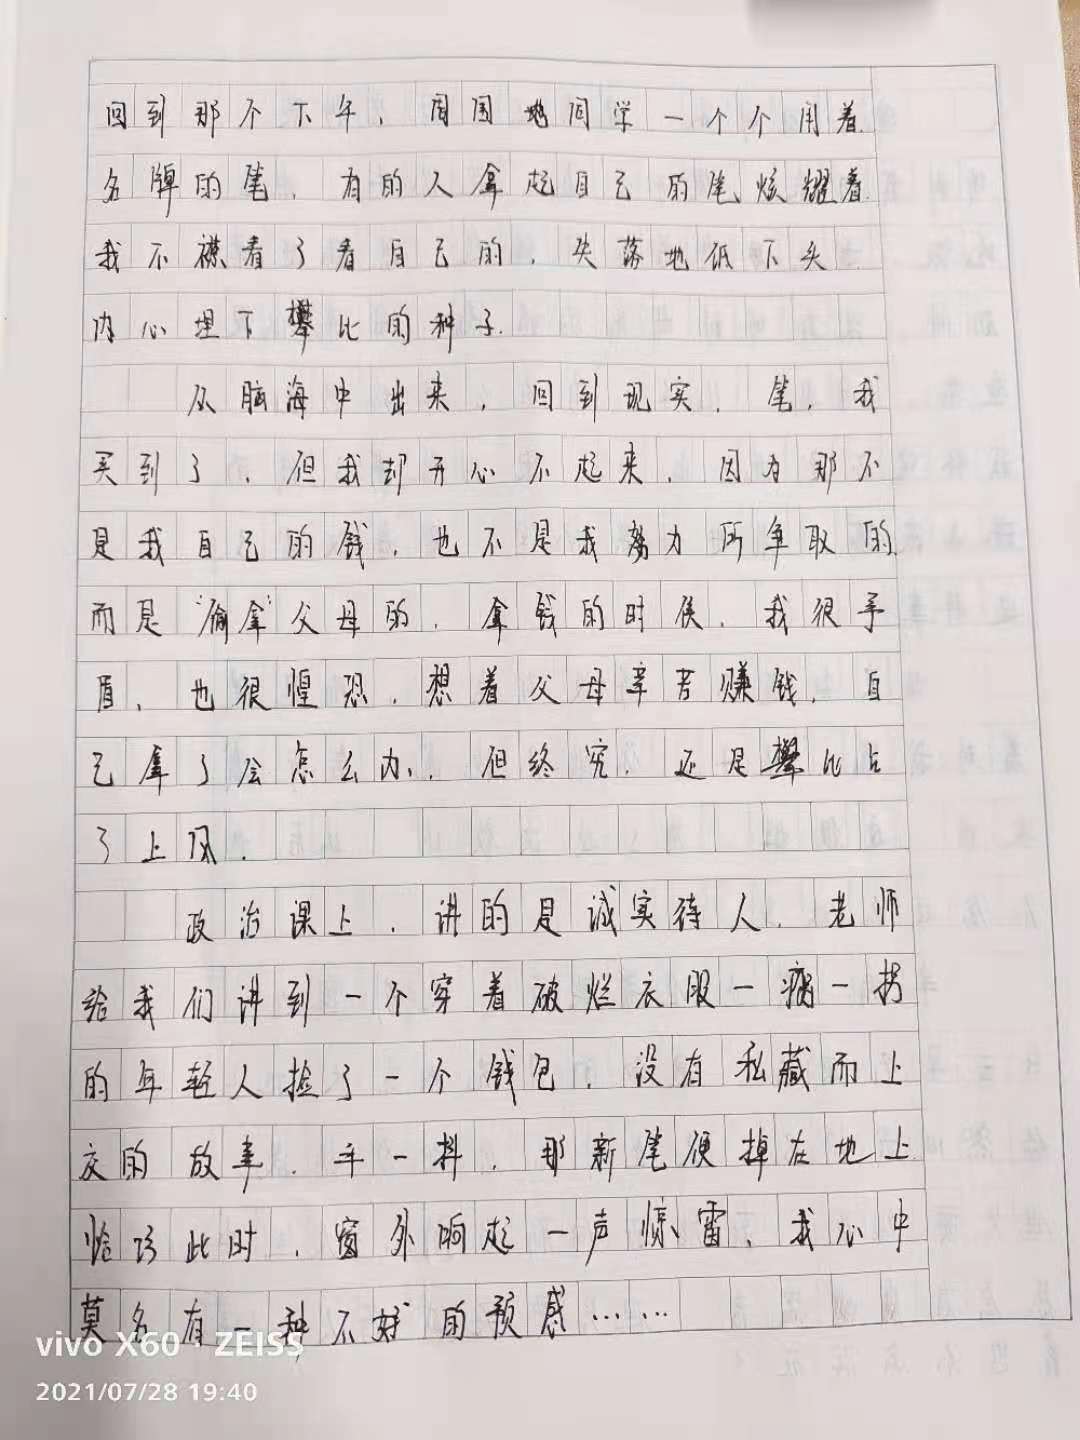 回到那个下午,周围地同学一个个用着
名牌的笔,有的人拿起自己的笔炫耀着.
我不襟看了看自己的,失落地低下头.
内心埋下攀比的种子.
从脑海中出来,回到现实,笔,我
买到了,但我却开心不起来,因为那不
是我自己的钱,也不是我努力所争取的.
而是"偷拿"父母的,拿钱的时侯,我很矛
盾,也很惶恐,想着父母辛苦赚钱,自
己拿了会怎么办,但终究,还是攀比占
了上风.
政治课上,讲的是诚实待人,老师
给我们讲到一个穿着破烂衣服一瘸一拐
的年轻人捡了一个钱包,没有私藏而上
交的故事,手一抖,那新笔便掉在地上.
恰巧此时,窗外响起一声惊雷,我心中
莫名有一种不好的预感……
vivo X60 · ZEISS
2021/07/28 19:40